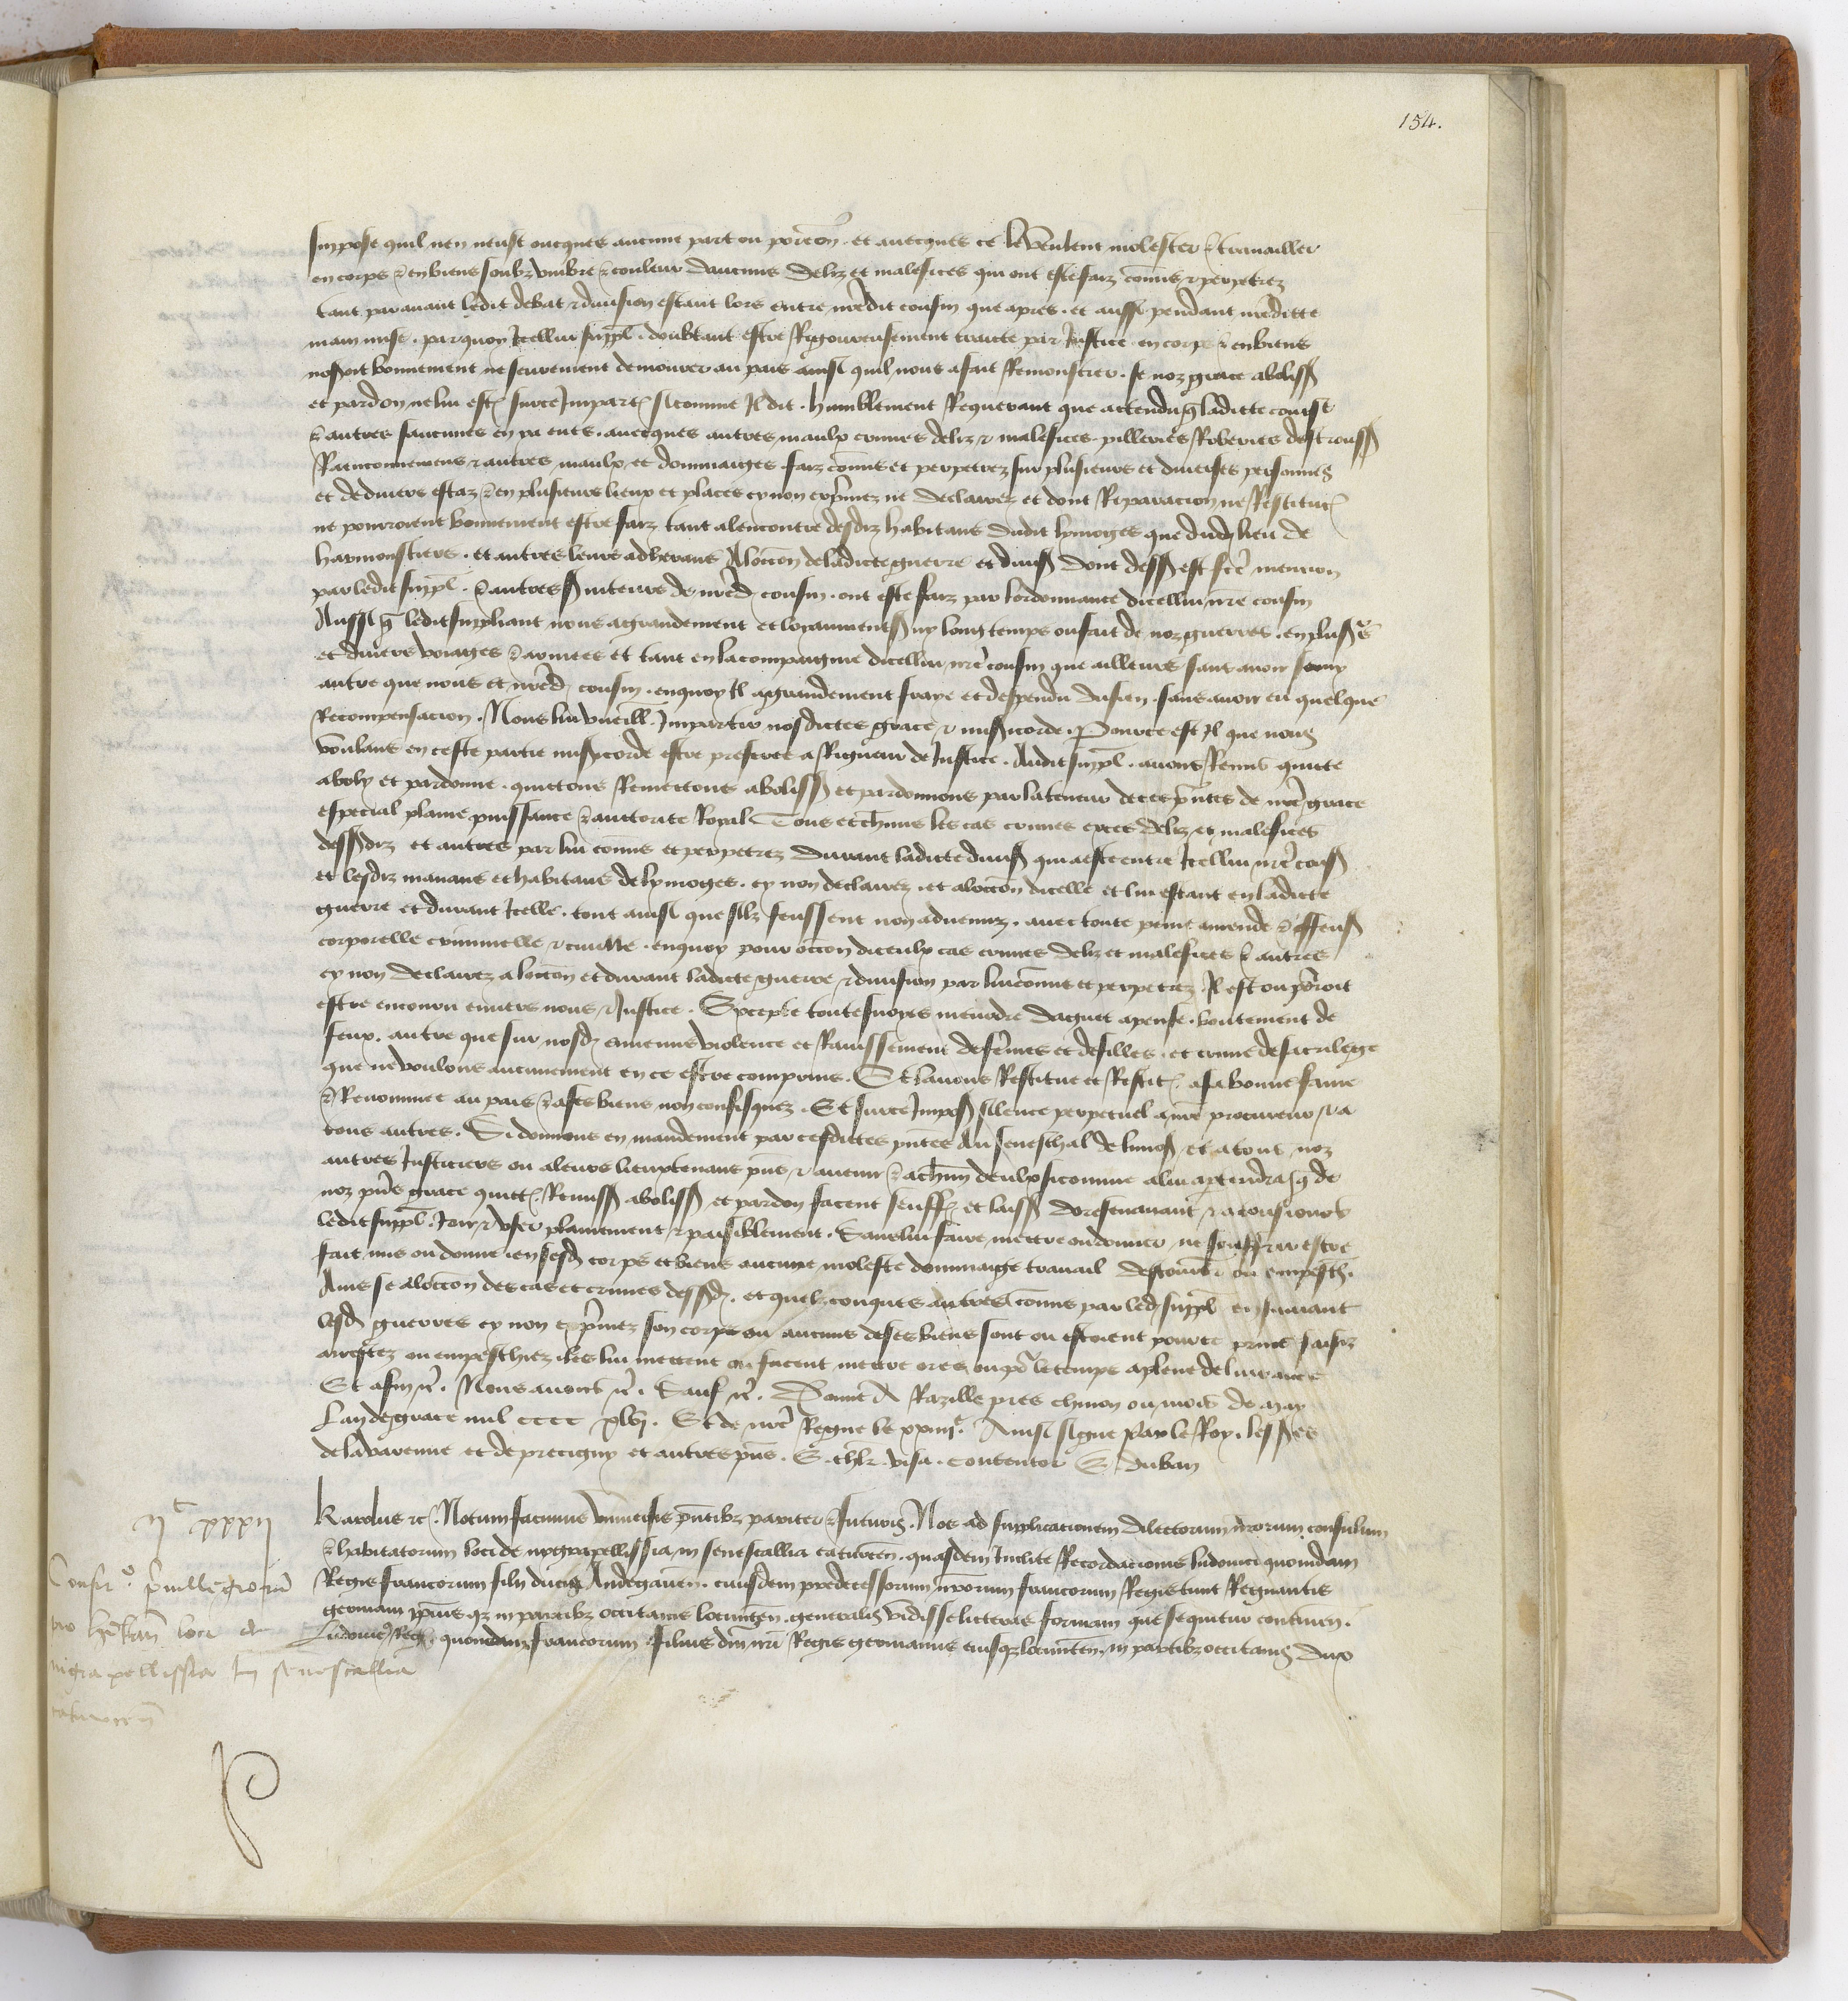 154.
suppose quil nen neust oncques aucune part ou porcion. et avecques ce le veulent molester & travailler
en corps & en biens soubz umbre & couleur daucuns deliz et malefices qui ont este faiz commis & perpetrez
tant paravant ledit debat & division estant lors entre nredit cousin que apres. et aussi pendant nreditte
main mise. par quoy Icellui suppl. doubtant estre Rigoureusement traicte par Justice en corps & en biens
nosoit bonnement ne seurement demourer au pais ainsi quil nous a fait Remonstrer. se noz grace aboliss
et pardon ne lui est sur ce Impart sicomme Il dit. humblement Requerant que actendu q laditte
& autres avecques autres maulx crimes deliz & malefices pilleries Roberies destrouss
Raenconnemens & autres maulx et dommaiges faiz commis et perpetrez sur plusieurs et diverses personnes
et de divers estaz & en plusieurs lieux et places cy non exprimez ne declairez et dont Reparacion ne Restitut
ne pourroient bonnement estre faiz tant alencontre desdiz habitans dudit lymoges que dud lieu de
harmonstiers. et autres leurs adherans A loccon de ladicte guerre et divis dont dess est fcte mention
par ledit suppl. & autres s inteurs de nred cousin. ont este faiz par lordonnance dicellui nre cousin
Aussi q ledit suppliant nous a grandement et loyaument s uy long temps ou fait de noz guerres. en plus s
et divers voiages & armees et tant en la compaignie dicellui nre cousin que ailleurs sans avoir servy
autre que nous et nred cousin. en quoy Il a grandement fraye et despendu du sien. sans avoir eu quelque
Recompensacion. Nous lui vueill. Impartir nosdictes grace & mis icorde. Pource est Il que nous
voulans en ceste partie misericorde estre preferee a Rigueur de Justice. Audit suppl. avons Remis quicte
aboly et pardonne. quictons Remectons aboliss et pardonnons par la teneur de ces pntes de nre grace
especial plaine puissance & auctorite Royal Tous et chuns les cas crimes exces deliz et malefices
dessdiz et autres par lui commis et perpetrez durant ladicte divis qui a este entre Icellui nre cous
et lesdiz manans et habitans de lymoges. cy non declairez. et a loccon dicelle et lui estant en ladicte
guerre et durant Icelle. tout ainsi que silz feussent non advenuz. avec toute peine amende & offens
corporelle criminelle & civille. en quoy pour occon diceulx cas crimes deliz et malefices & autres
cy non declairez a loccon et durant ladicte guerre & division par lui commis et perpetrez. Il est ou porroit
estre encouru envers nous & Justice. Excepte toutesvoyes meurdre daguet apense. boutement de
feux. autre que sur nosd ennemis violence et Ravissement de femmes et de filles. et crime de sacrilege
que ne voulons aucunement en ce estre comprins. Et lavons Restitue et Restit. a sa bonne fame
& Renommee au pais & a ses biens non confisquez. Et sur ce Impos silence perpetuel a nre procureur & a
tous autres. Si donnons en mandement par cesdictes pntes Au seneschal de limos et a tous noz
autres Justiciers ou a leurs lieuxtenans pns & avenir & a chun deulx sicomme a lui aptendra q de
noz pns grace quict Remiss aboliss et pardon facent seuff et laiss doresenavant & a tousiours
ledit suppl. Joir & user plainement & paisiblement. Sans lui faire mettre ou donner ne souffrir estre
fait mis ou donne en sesd corps et biens aucune moleste dommaige travail destourb ou empesch.
Ains se a loccon des cas et crimes dessd. et quelzconques autres commis par led suppl en suivant
lesd guerres cy non exprimez son corps ou aucuns de ses biens sont ou estoient pour ce prins saisiz
arrestez ou empeschiez ilz les lui mettent ou facent mettre ores ou po le temps a plene delivrance
Et afin &c. Nous avons &c. Sauf &c. Donne A Razille pres chinon ou mois de may
Lan de grace mil cccc xlvj. Et de nre Regne le xxiiije. Ainsi signe Par le Roy. les srs
de la varenne et de precigny et autres pns. E. chlr. visa. contentor E. duban
ijc xxxij
Confir o privillegiorum
pro hitan loci de
nigra pellissia In senescallia
caturcen
Karolus &c. Notum facimus universis pntibz pariter & futuris. Nos ad supplicationem dilectorum nrorum consulum
& habitatorum loci de nygrapellissia, in senescallia caturcen. quasdem Inclite Recordacionis ludovici quondam
Regis francorum filii ducis Andegaven. eiusdem predecessorum nrorum francorum Regis tunc Regnantis
germani ipsius qz in partibz occitanis locumten. generalis vidisse litteras formam que sequitur continen.
Ludovic Reg. quondam francorum filius dni nri Regis germanus eiusqz locumten. in partibz occitanis dux